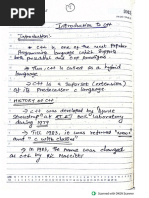 1
Introduction to C++
Introduction:
→ C++ is one of the most Popular
Programming language which supports
both procedural and OOP paradigms
language
→ C++ is a superset (extension)
of its Predecessor C language
HISTORY OF C++
→ C++ was developed by Bjarne
Stroustrup at AT & T Bell Laboratories
during 1979
→ Till 1983, it was referred
"C with classes"
In 1983, the name was changed
as C++ by Ric Mascitti
Scanned with OKEN Scanner